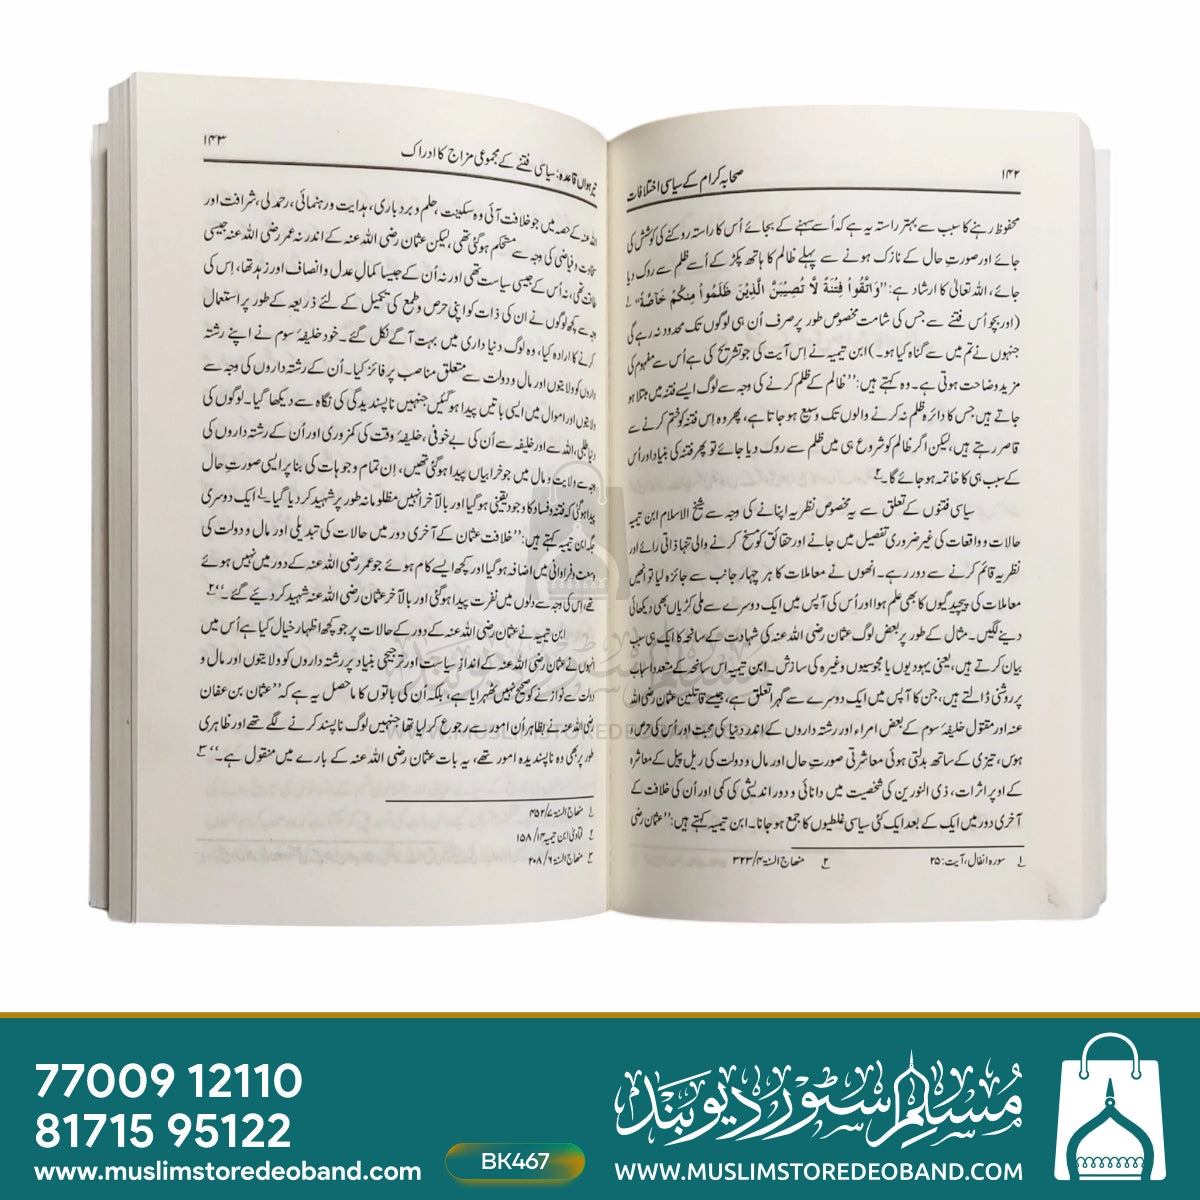 ۱۴۲
صحابہ کرام کے سیاسی اختلافات
محفوظ رہنے کا سبب سے بہتر راستہ یہ ہے کہ اُسے سہنے کے بجائے اُس کا راستہ روکنے کی کوشش کی
جائے اور صورتِ حال کے نازک ہونے سے پہلے ظالم کا ہاتھ پکڑ کے اُسے ظلم سے روک دیا
جائے، اللہ تعالیٰ کا ارشاد ہے: ”وَاتَّقُواْ فِتْنَةً لَّا تُصِيْبَنَّ الَّذِيْنَ ظَلَمُواْ مِنكُمْ خَآصَّةً“ ۱؎
(اور بچو اُس فتنے سے جس کی شامت مخصوص طور پر صرف اُن ہی لوگوں تک محدود نہ رہے گی
جنہوں نے تم میں سے گناہ کیا ہو۔) ابن تیمیہ نے اِس آیت کی جو تشریح کی ہے اُس سے مفہوم کی
مزید وضاحت ہوتی ہے۔ وہ کہتے ہیں: ”ظالم کے ظلم کرنے کی وجہ سے لوگ ایسے فتنہ میں مبتلا ہو
جاتے ہیں جس کا دائرہ ظلم نہ کرنے والوں تک وسیع ہو جاتا ہے، پھر وہ اِس فتنہ کو ختم کرنے سے
قاصر رہتے ہیں، لیکن اگر ظالم کو شروع ہی میں ظلم سے روک دیا جائے تو پھر فتنہ کی بنیاد اور اُس
کے سبب ہی کا خاتمہ ہو جائے گا۔ ۲؎
سیاسی فتنوں کے تعلق سے یہ مخصوص نظریہ اپنانے کی وجہ سے شیخ الاسلام ابن تیمیہ
حالات و واقعات کی غیر ضروری تفصیل میں جانے اور حقائق کو مسخ کرنے والی تنہا ذاتی رائے اور
نظریہ قائم کرنے سے دور رہے۔ انھوں نے معاملات کا ہر چہار جانب سے جائزہ لیا تو انھیں
معاملات کی پیچیدگیوں کا بھی علم ہوا اور اُس کی آپس میں ایک دوسرے سے ملی کڑیاں بھی دیکھائی
دینے لگیں۔ مثال کے طور پر بعض لوگ عثمان رضی اللہ عنہ کی شہادت کے سانحہ کا ایک ہی سبب
بیان کرتے ہیں، یعنی یہودیوں یا مجوسیوں وغیرہ کی سازش۔ ابن تیمیہ اس سانحہ کے متعدد اسباب
پر روشنی ڈالتے ہیں، جن کا آپس میں ایک دوسرے سے گہرا تعلق ہے، جیسے قاتلین عثمان رضی اللہ
عنہ اور مقتول خلیفہ سوم کے بعض امراء اور رشتہ داروں کے اندر دنیا کی محبت اور اُس کی حرص و
ہوس، تیزی کے ساتھ بدلتی ہوئی معاشرتی صورتِ حال اور مال و دولت کی ریل پیل کے معاشرہ
کے اوپر اثرات، ذی النورین کی شخصیت میں دانائی و دور اندیشی کی کمی اور اُن کی خلافت کے
آخری دور میں ایک کے بعد ایک کئی سیاسی غلطیوں کا جمع ہو جانا۔ ابن تیمیہ کہتے ہیں: ”عثمان رضی
۱؎ سورہ انفال، آیت: ۲۵ ۲؎ منھاج السنۃ ۴/۳۲۳
تیرہواں قاعدہ: سیاسی فتنے کے مجموعی مزاج کا ادراک
۱۴۳
اللہ عنہ کے حصہ میں جو خلافت آئی وہ سکینت، حلم و بردباری، ہدایت ورہنمائی، رحمدلی، شرافت اور
سخاوت وفیاضی کی وجہ سے مستحکم ہو گئی تھی، لیکن عثمان رضی اللہ عنہ کے اندر نہ عمر رضی اللہ عنہ جیسی
طاقت تھی، نہ اُس کے جیسی سیاست تھی اور نہ اُن کے جیسا کمالِ عدل و انصاف اور زہد تھا، اِس کی
وجہ سے کچھ لوگوں نے ان کی ذات کو اپنی حرص و طمع کی تکمیل کے لئے ذریعہ کے طور پر استعمال
کرنے کا ارادہ کیا، وہ لوگ دنیا داری میں بہت آگے نکل گئے۔ خود خلیفہ سوم نے اپنے رشتہ
داروں کو ولایتوں اور مال و دولت سے متعلق مناصب پر فائز کیا۔ اُن کے رشتہ داروں کی وجہ سے
ولایتوں اور اموال میں ایسی باتیں پیدا ہو گئیں جنہیں ناپسندیدگی کی نگاہ سے دیکھا گیا۔ لوگوں کی
دنیا طلبی، اللہ سے اور خلیفہ سے اُن کی بے خوفی، خلیفۂ وقت کی کمزوری اور اُن کے رشتہ داروں کی
وجہ سے ولایت و مال میں جو خرابیاں پیدا ہو گئی تھیں، اِن تمام وجوہات کی بنا پر ایسی صورتِ حال
پیدا ہو گئی کہ فتنہ وفساد کا وجود یقینی ہو گیا اور بالآخر انہیں مظلومانہ طور پر شہید کر دیا گیا۔ ۱؎ ایک دوسری
جگہ ابن تیمیہ کہتے ہیں: ”خلافت عثمان کے آخری دور میں حالات کی تبدیلی اور مال و دولت کی
وسعت و فراوانی میں اضافہ ہو گیا اور کچھ ایسے کام ہوئے جو عمر رضی اللہ عنہ کے دور میں نہیں ہوئے
تھے، اِس کی وجہ سے دلوں میں نفرت پیدا ہو گئی اور بالآخر عثمان رضی اللہ عنہ شہید کر دیے گئے۔“ ۲؎
ابن تیمیہ نے عثمان رضی اللہ عنہ کے دور کے حالات پر جو کچھ اظہار خیال کیا ہے اُس میں
انہوں نے عثمان رضی اللہ عنہ کے اندازِ سیاست اور ترجیحی بنیاد پر رشتہ داروں کو ولایتوں اور مال و
دولت سے نوازنے کو صحیح نہیں ٹھہرایا ہے، بلکہ اُن کی باتوں کا ماحصل یہ ہے کہ ”عثمان بن عفان
رضی اللہ عنہ نے بظاہر اُن امور سے رجوع کر لیا تھا جنہیں لوگ ناپسند کرنے لگے تھے اور ظاہری
طور پر بھی وہ ناپسندیدہ امور تھے، یہ بات عثمان رضی اللہ عنہ کے بارے میں منقول ہے۔“ ۳؎
۱؎ منھاج السنۃ ۷/۴۵۲
۲؎ فتاویٰ ابن تیمیہ ۱۴/۱۵۸
۳؎ منھاج السنۃ ۶/۲۰۸
مسلم سٹور دیوبند
WWW.MUSLIMSTOREDEOBAND.COM
77009 12110
81715 95122
www.muslimstoredeoband.com
BK467
مسلم سٹور دیوبند
WWW.MUSLIMSTOREDEOBAND.COM